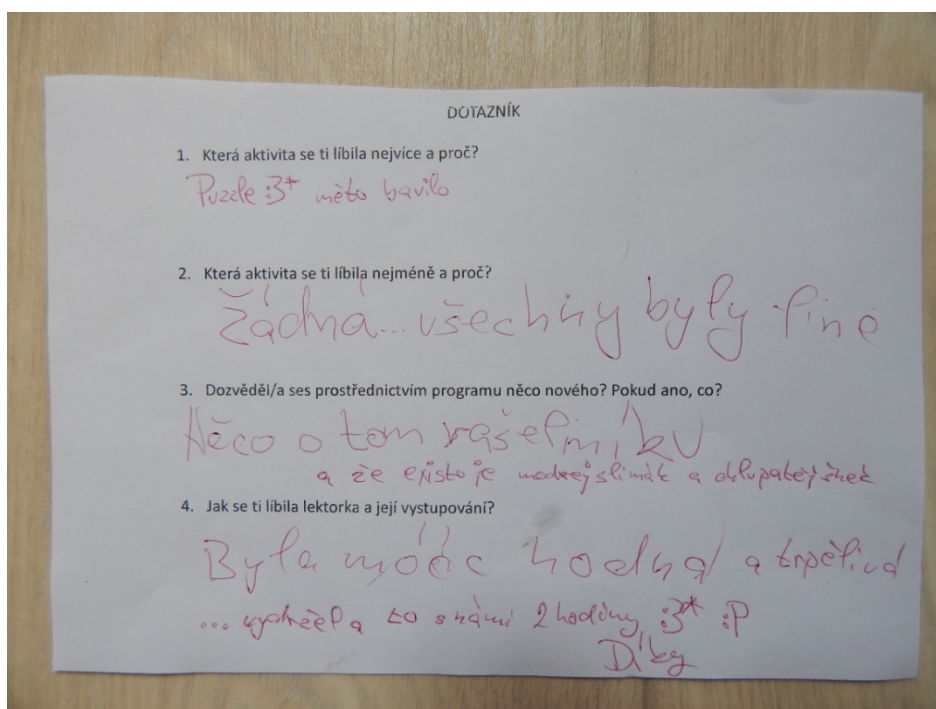 DOTAZNÍK
1. Která aktivita se ti líbila nejvíce a proč?
Puzzle :3* měto bavilo
2. Která aktivita se ti líbila nejméně a proč?
Žádná... všechny byly fine
3. Dozvěděl/a ses prostřednictvím programu něco nového? Pokud ano, co?
Něco o tom rašeliníku
a že existuje modrej slimák a chlupatej šnek
4. Jak se ti líbila lektorka a její vystupování?
Byla móóc hodná a trpělivá
... vydržela to s námi 2 hodiny :3* :P
Díky